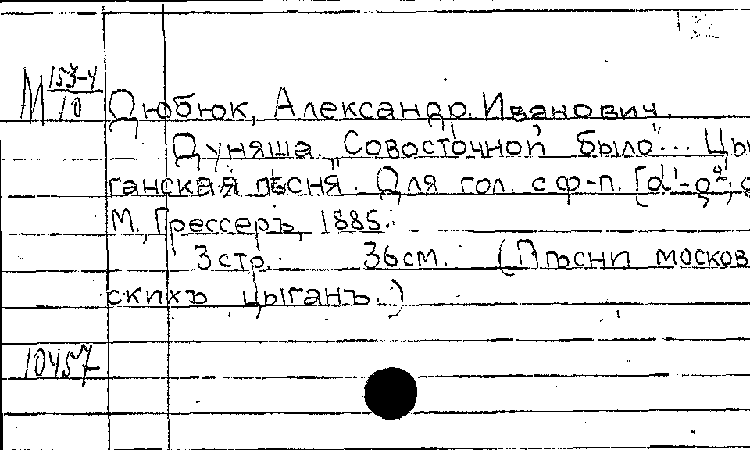 М 153-4/10
Дюбюк, Александр Иванович.
Дуняша „Совосточной было"... Цы
ганская пѣсня. Для гол. с ф-п. [d¹-g²,
М., Грессеръ, 1885.
3 стр. 36 см. (Пѣсни москов
скихъ цыганъ.)
10457